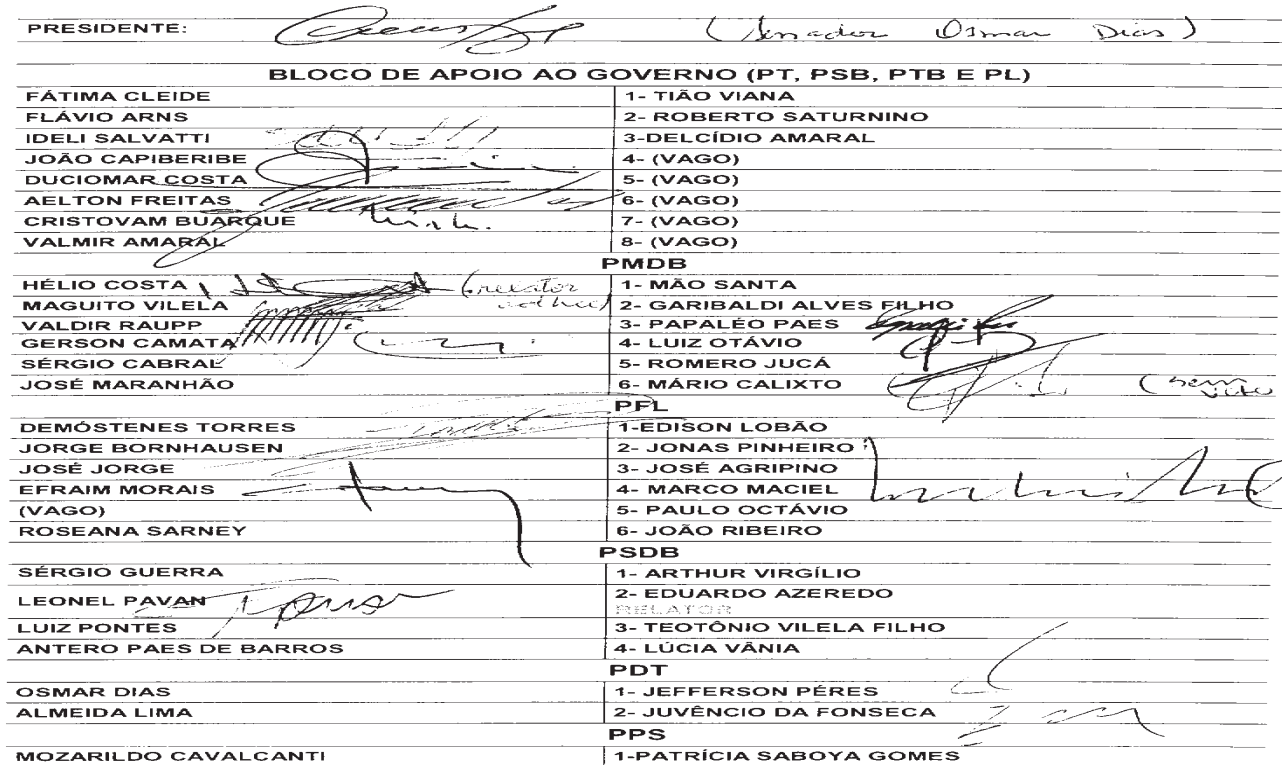 PRESIDENTE: (Senador Osmar Dias)
BLOCO DE APOIO AO GOVERNO (PT, PSB, PTB E PL)
FÁTIMA CLEIDE 1- TIÃO VIANA
FLÁVIO ARNS 2- ROBERTO SATURNINO
IDELI SALVATTI 3-DELCÍDIO AMARAL
JOÃO CAPIBERIBE 4- (VAGO)
DUCIOMAR COSTA 5- (VAGO)
AELTON FREITAS 6- (VAGO)
CRISTOVAM BUARQUE 7- (VAGO)
VALMIR AMARAL 8- (VAGO)
PMDB
HÉLIO COSTA (relator 1- MÃO SANTA
MAGUITO VILELA ad hoc) 2- GARIBALDI ALVES FILHO
VALDIR RAUPP 3- PAPALÉO PAES
GERSON CAMATA 4- LUIZ OTÁVIO
SÉRGIO CABRAL 5- ROMERO JUCÁ
JOSÉ MARANHÃO 6- MÁRIO CALIXTO (sem voto
PFL
DEMÓSTENES TORRES 1-EDISON LOBÃO
JORGE BORNHAUSEN 2- JONAS PINHEIRO
JOSÉ JORGE 3- JOSÉ AGRIPINO
EFRAIM MORAIS 4- MARCO MACIEL
(VAGO) 5- PAULO OCTÁVIO
ROSEANA SARNEY 6- JOÃO RIBEIRO
PSDB
SÉRGIO GUERRA 1- ARTHUR VIRGÍLIO
LEONEL PAVAN 2- EDUARDO AZEREDO
RELATOR
LUIZ PONTES 3- TEOTÔNIO VILELA FILHO
ANTERO PAES DE BARROS 4- LÚCIA VÂNIA
PDT
OSMAR DIAS 1- JEFFERSON PÉRES
ALMEIDA LIMA 2- JUVÊNCIO DA FONSECA
PPS
MOZARILDO CAVALCANTI 1-PATRÍCIA SABOYA GOMES